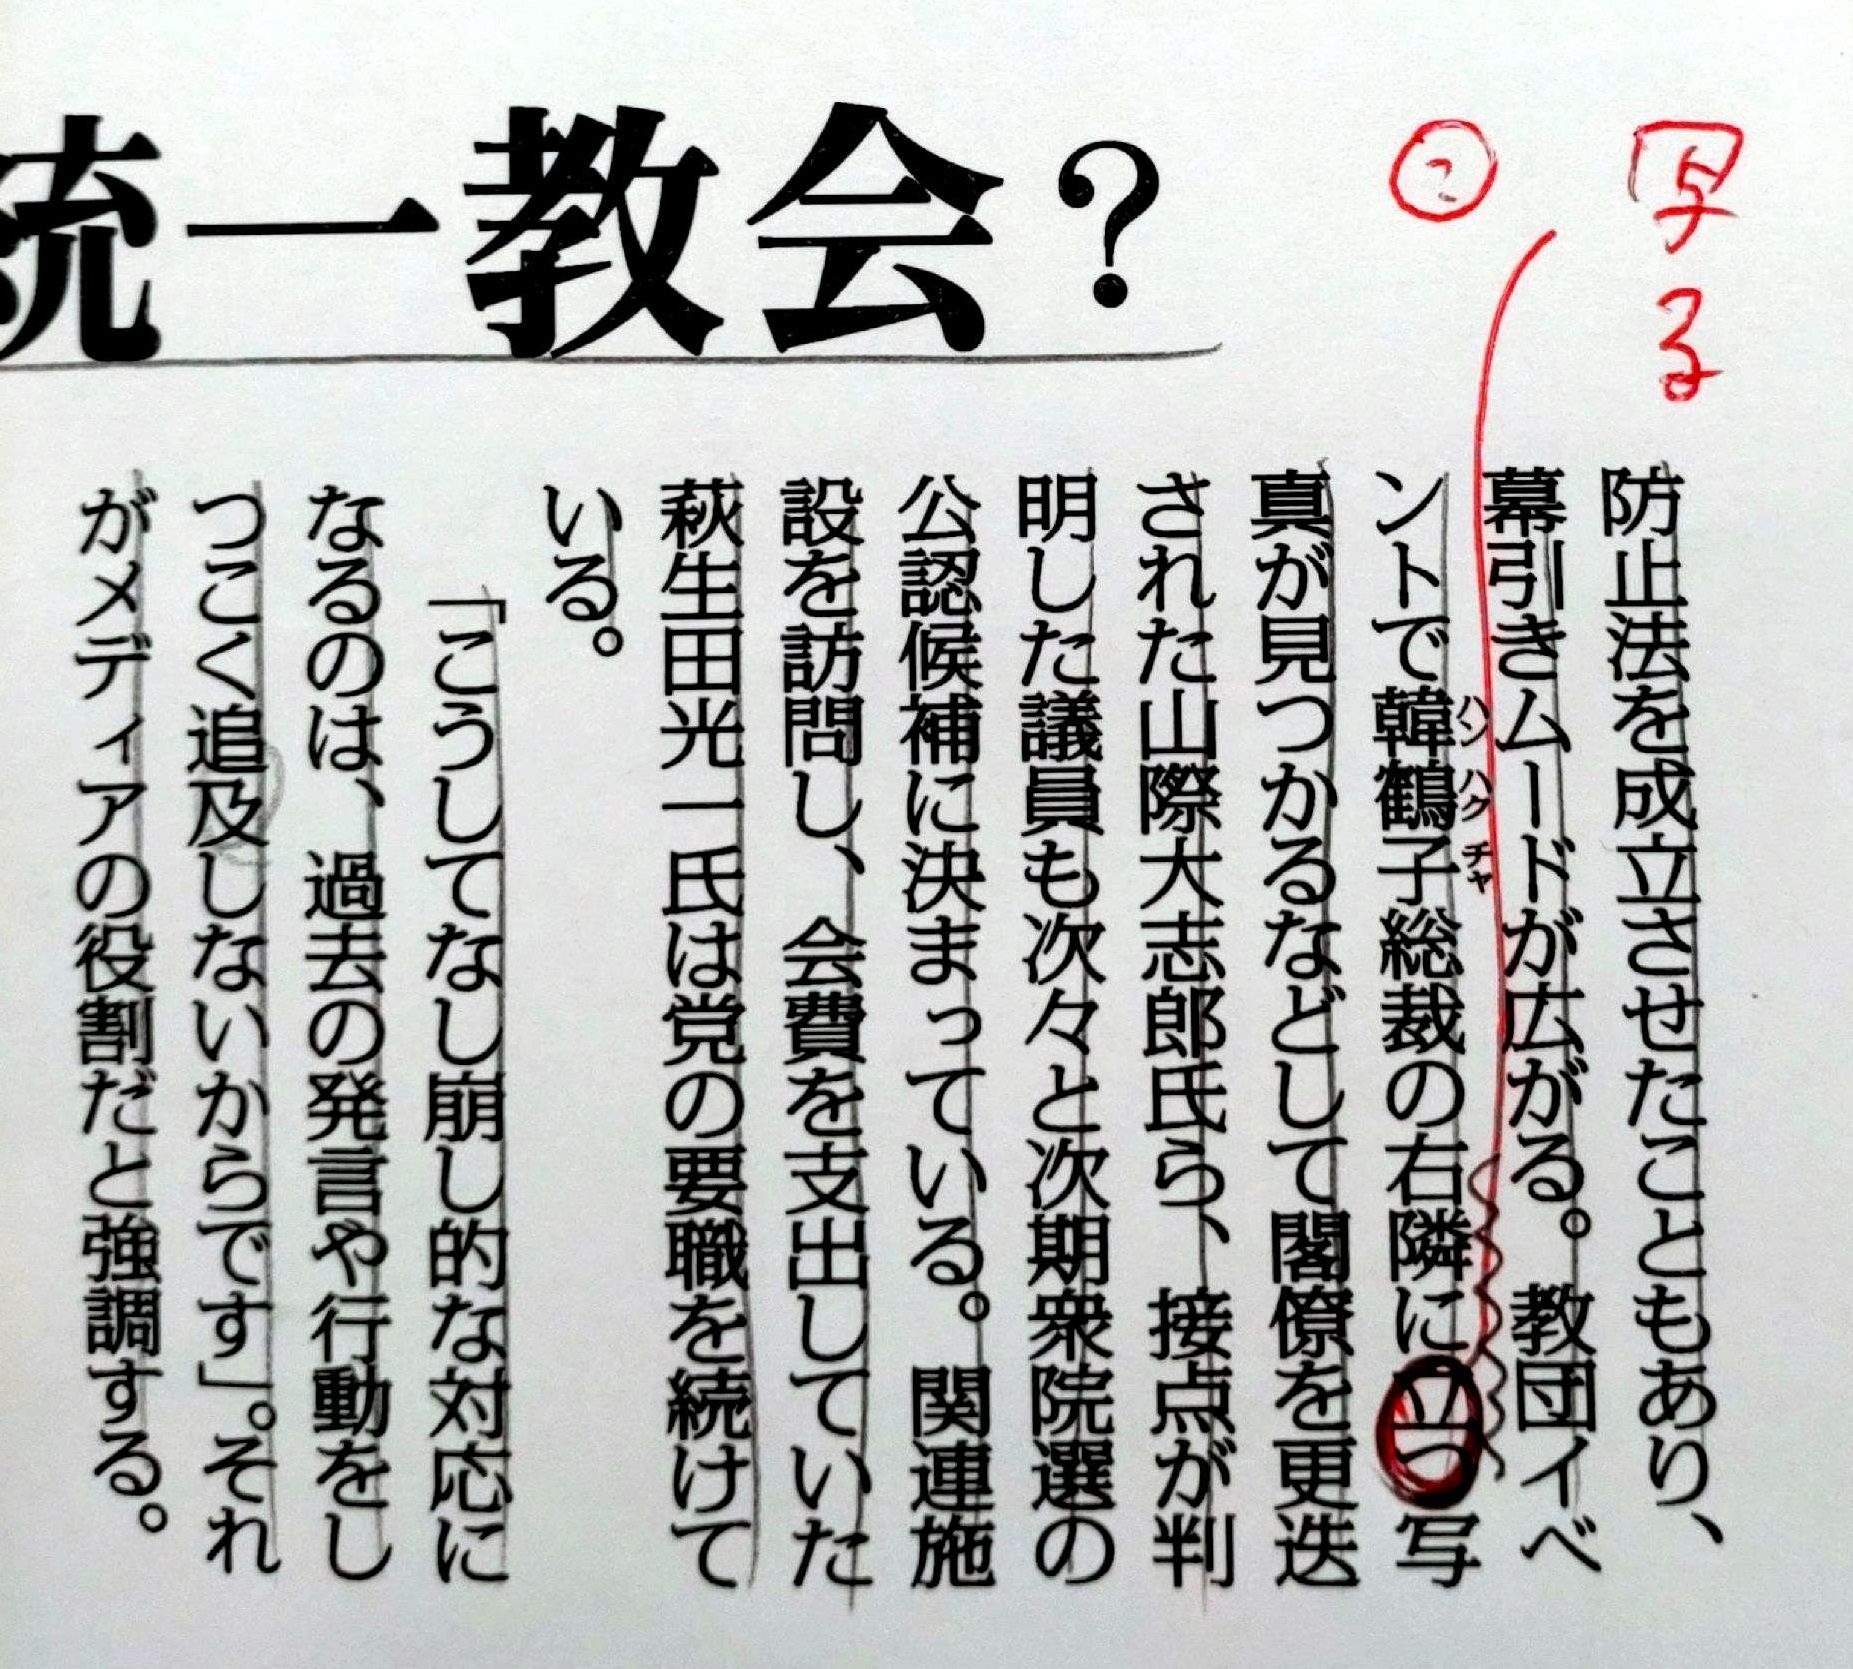 統一教会?
こ
写る
防止法を成立させたこともあり、
幕引きムードが広がる。教団イベ
ントで韓鶴子総裁の右隣に立つ写
ハンハクチャ
真が見つかるなどして閣僚を更迭
された山際大志郎氏ら、接点が判
明した議員も次々と次期衆院選の
公認候補に決まっている。関連施
設を訪問し、会費を支出していた
萩生田光一氏は党の要職を続けて
いる。
「こうしてなし崩し的な対応に
なるのは、過去の発言や行動をし
つこく追及しないからです」。それ
がメディアの役割だと強調する。